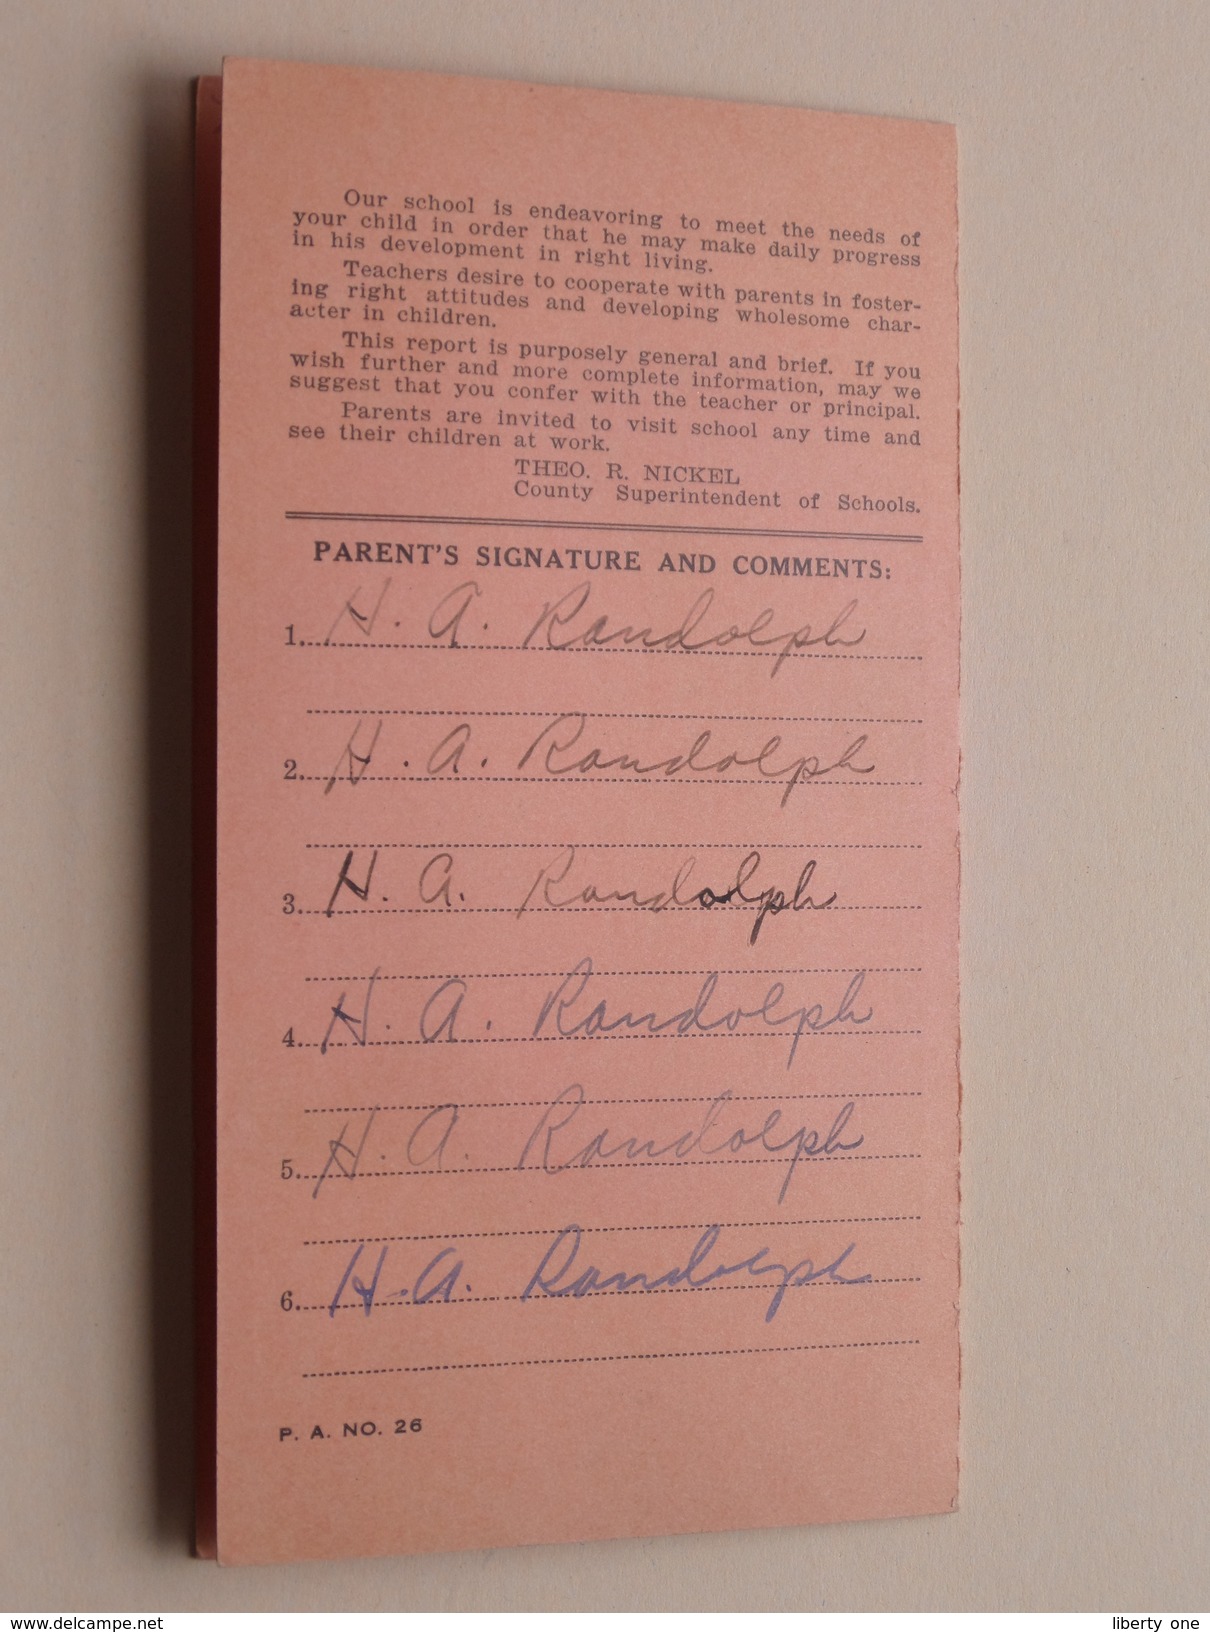 Our school is endeavoring to meet the needs of
your child in order that he may make daily progress
in his development in right living.
Teachers desire to cooperate with parents in foster-
ing right attitudes and developing wholesome char-
acter in children.
This report is purposely general and brief. If you
wish further and more complete information, may we
suggest that you confer with the teacher or principal.
Parents are invited to visit school any time and
see their children at work.
THEO. R. NICKEL
County Superintendent of Schools.
PARENT'S SIGNATURE AND COMMENTS:
1. H. A. Randolph
2. H. A. Randolph
3. H. A. Randolph
4. H. A. Randolph
5. H. A. Randolph
6. H. A. Randolph
P. A. NO. 26
www.delcampe.net
liberty one